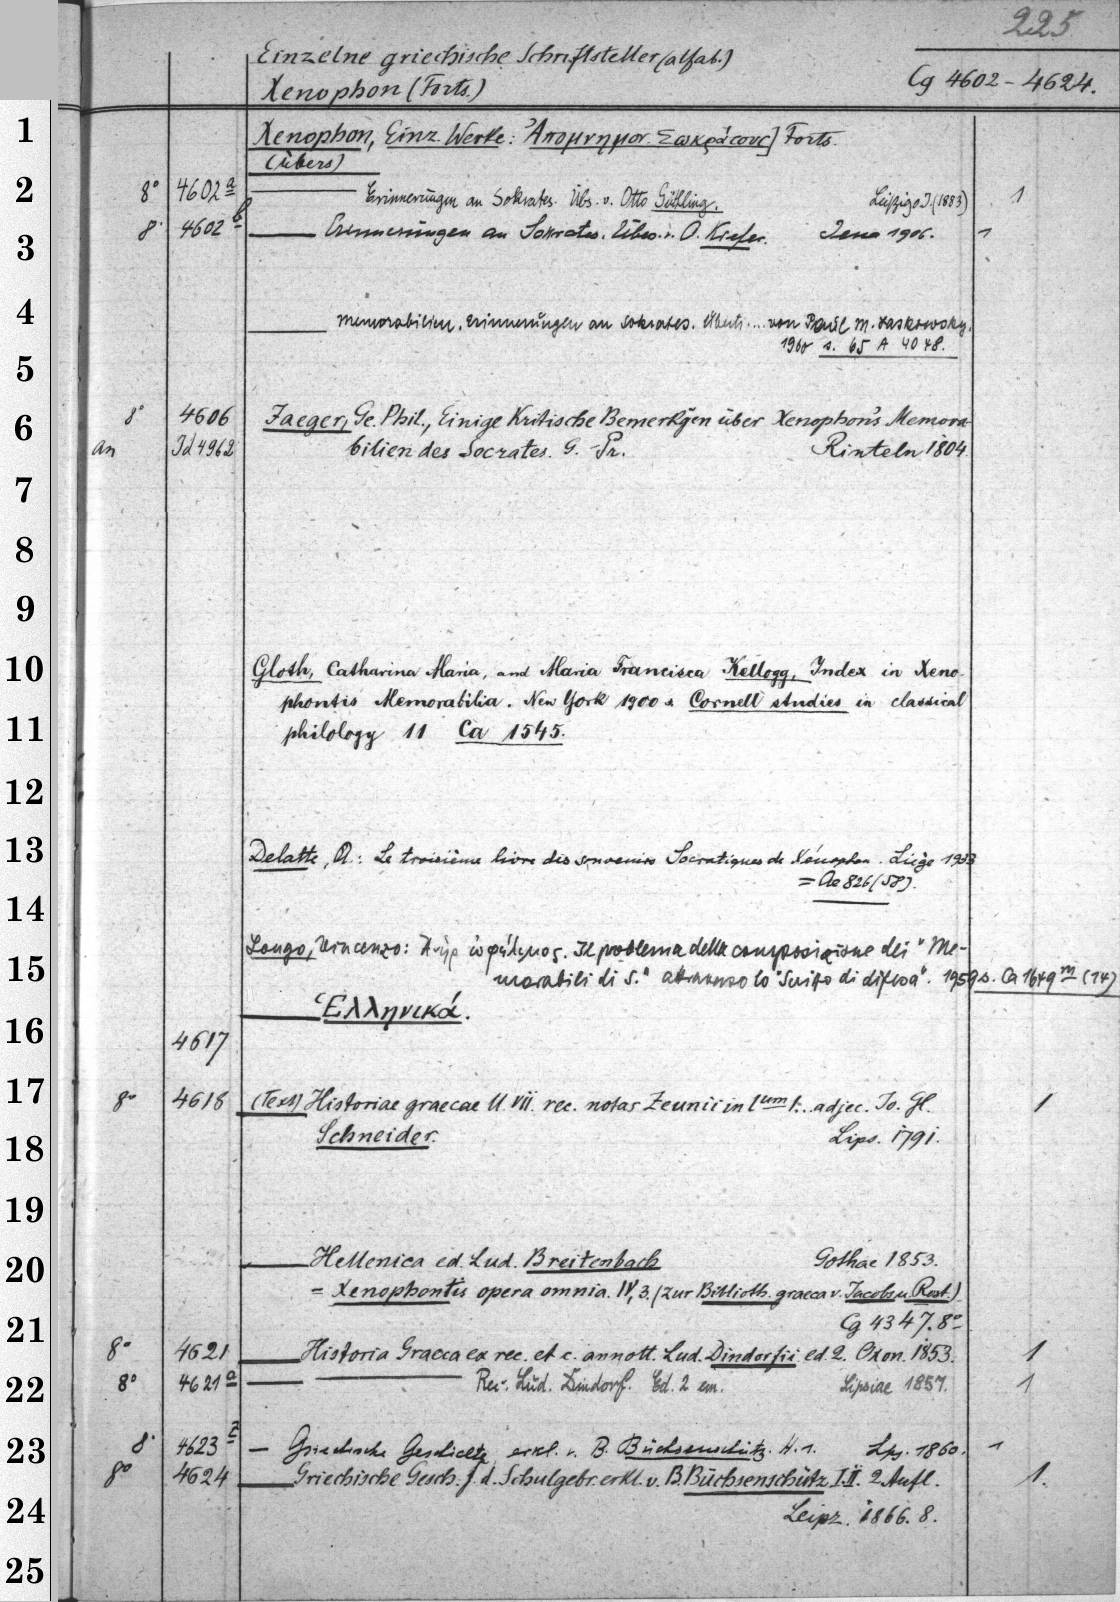 225
Einzelne griechische Schriftsteller (alfab.)
Xenophon (Forts.)
Cg 4602 - 4624.
1
Xenophon, Einz. Werke: Ἀπομνημον. Σωκράτους] Forts.
(Übers)
2
8° 4602 a Erinnerungen an Sokrates. Übs. v. Otto Güthling. Leipzig o. J. (1883) 1
8° 4602 b Erinnerungen an Sokrates. Übers. v. O. Kiefer. Jena 1906. 1
3
4
Memorabilien. Erinnerungen an Sokrates. Übertr. ... von Paul M. Laskowsky.
1960 s. 65 A 4048.
5
8° 4606 Jaeger, Ge. Phil., Einige Kritische Bemerkgen über Xenophon's Memora-
6
an Id 4962 bilien des Socrates. G.-Pr. Rinteln 1804.
7
8
9
10
Gloth, Catharina Maria, and Maria Francisca Kellogg, Index in Xeno-
phontis Memorabilia. New York 1900 = Cornell studies in classical
11
philology 11 Ca 1545.
12
13
Delatte, A.: Le troisième livre des souvenirs Socratiques de Xénophon. Liège 1933
= Ae 826 (58).
14
Longo, Vincenzo: Ἀνὴρ ὠφέλιμος. Il problema della composizione dei "Me-
15
morabili di S." attraverso lo "Scritto di difesa". 1959 s. Ca 1649 m (14)
Ἑλληνικά.
16
4617
17
8° 4618 (Text) Historiae graecae ll. VII. rec. notas Zeunii in l um l... adjec. Io. Gl.
18
Schneider. Lips. 1791. 1
19
Hellenica ed. Lud. Breitenbach Gothae 1853.
20
= Xenophontis opera omnia. IV, 3. (zur Biblioth. graeca v. Jacobs u. Rost.)
Cg 4347. 8°
21
8° 4621 Historia Graeca ex rec. et c. annott. Lud. Dindorfii ed. 2. Oxon. 1853. 1
22
8° 4621 a Rec. Lud. Dindorf. Ed. 2 em. Lipsiae 1857. 1
23
8° 4623 z Griechische Geschichte erkl. v. B. Büchsenschütz. H. 1. Lpz. 1860. 1
8° 4624 Griechische Gesch. f. d. Schulgebr. erkl. v. B. Büchsenschütz I. II. 2 Aufl. 1.
24
Leipz. 1866. 8.
25